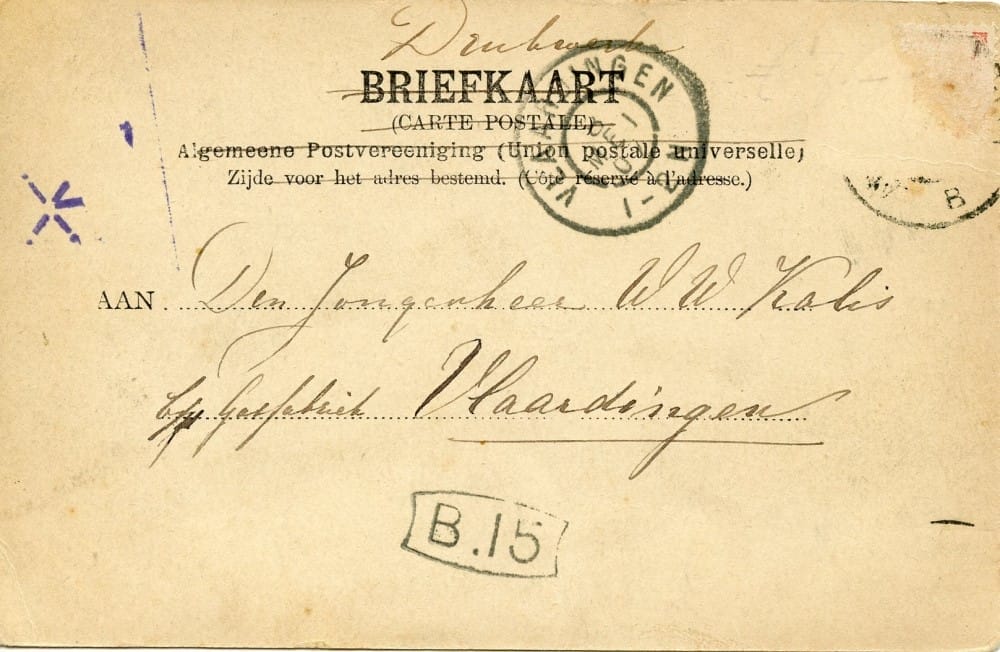 Drukwerk
BRIEFKAART
(CARTE POSTALE)
Algemeene Postvereeniging (Union postale universelle)
Zijde voor het adres bestemd. (Côté réservé à l'adresse.)
VLAARDINGEN
1-2N
B
AAN Den Jongenheer W W Kalis
Gasfabriek Vlaardingen
B.15